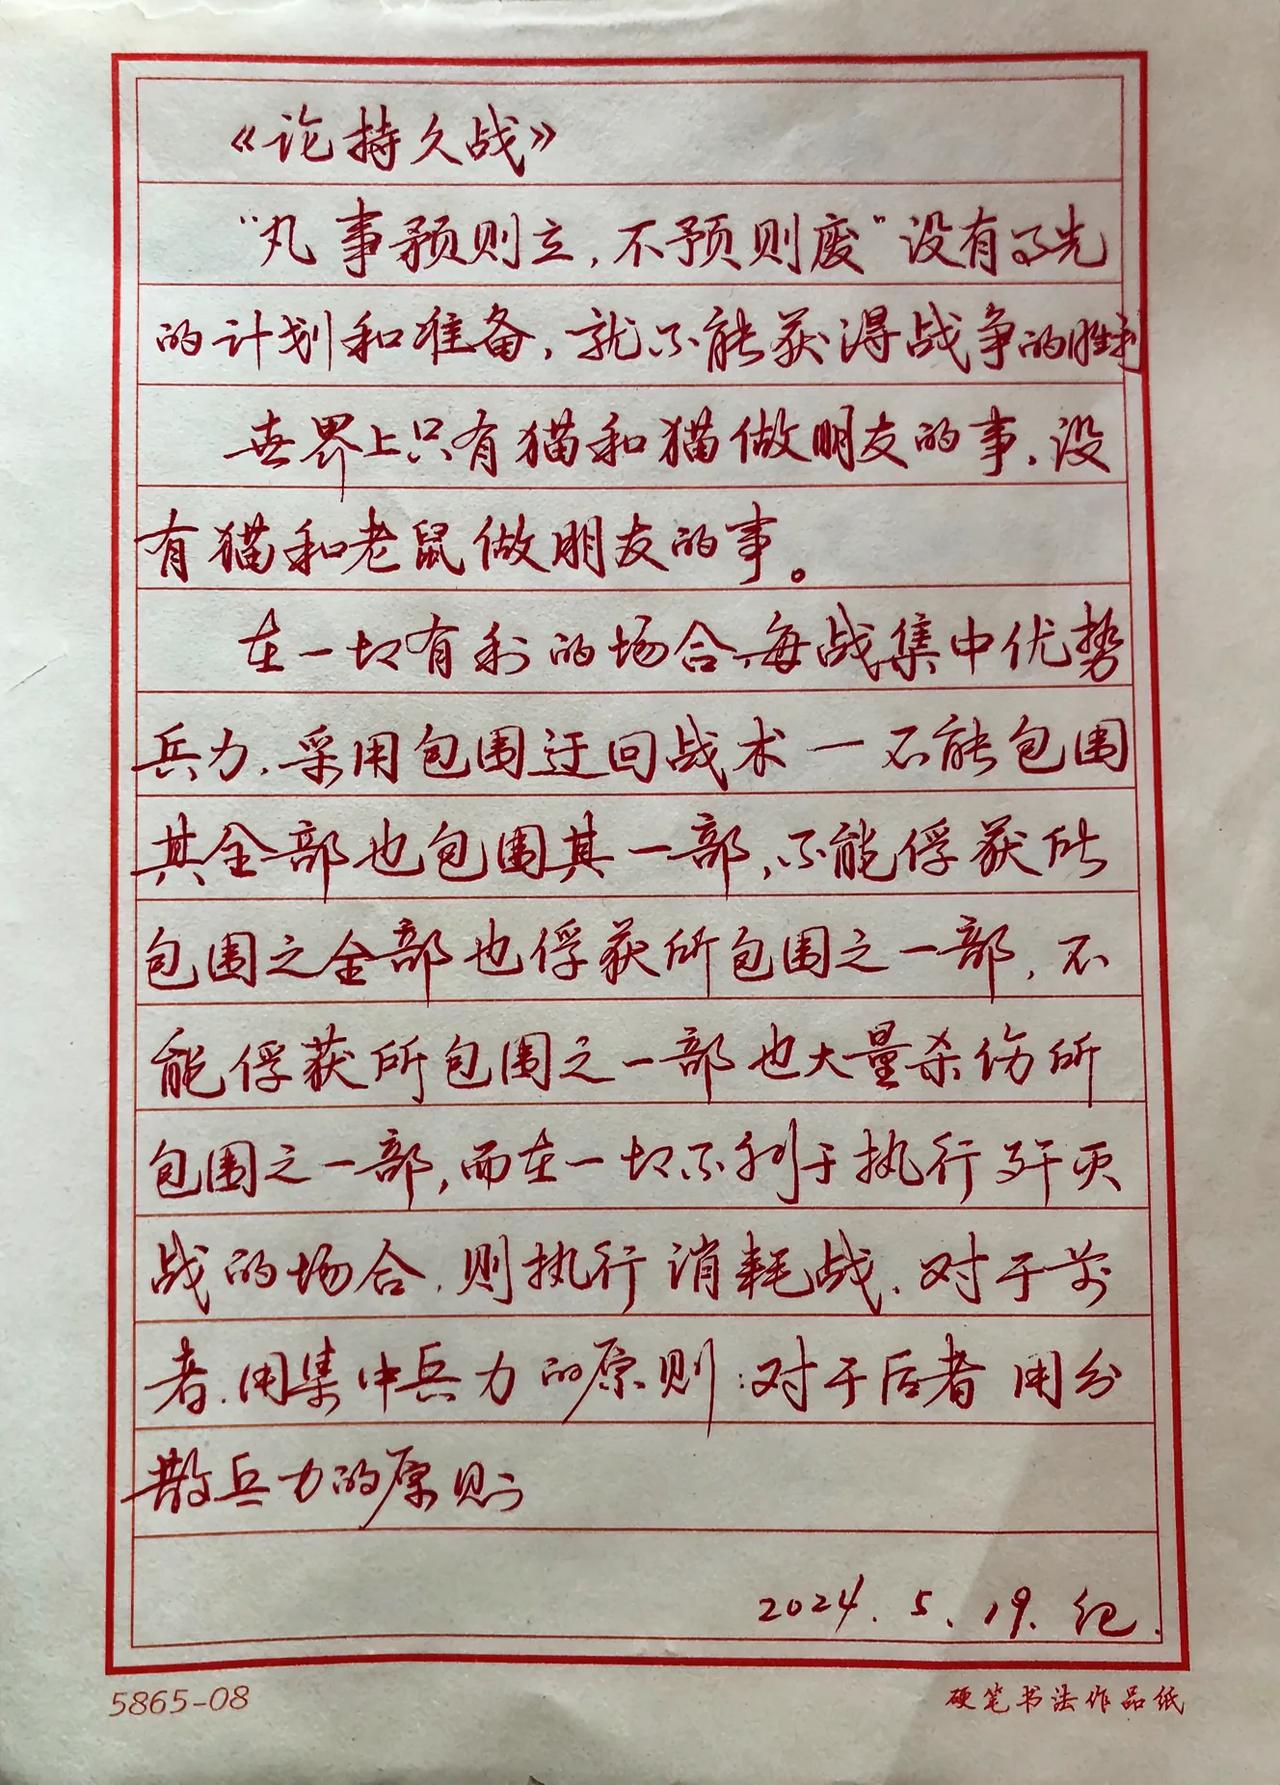 《论持久战》
“凡事预则立，不预则废”没有事先
的计划和准备，就不能获得战争的胜利
世界上只有猫和猫做朋友的事，没
有猫和老鼠做朋友的事。
在一切有利的场合，每战集中优势
兵力，采用包围迂回战术一不能包围
其全部也包围其一部，不能俘获所
包围之全部也俘获所包围之一部，不
能俘获所包围之一部也大量杀伤所
包围之一部，而在一切不利于执行歼灭
战的场合，则执行消耗战，对于前
者，用集中兵力的原则：对于后者 用分
散兵力的原则
2024.5.19.纪.
5865-08
硬笔书法作品纸